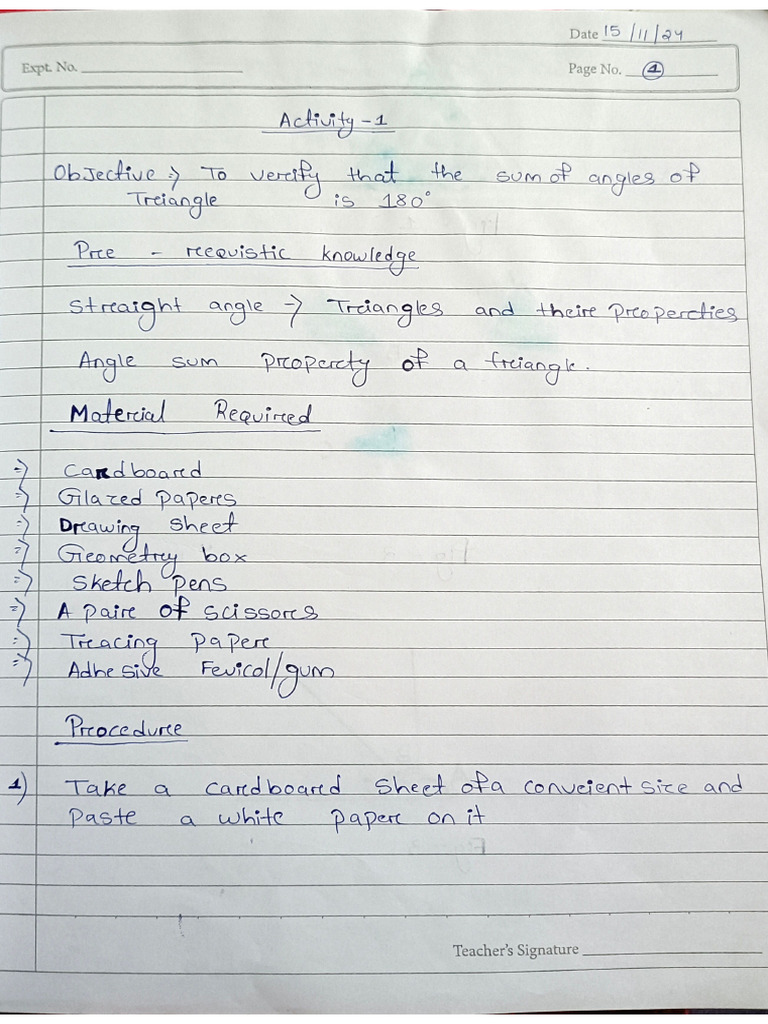 Date 15/11/24
Expt. No.
Page No. 1
Activity - 1
Objective :⇒ To verify that the sum of angles of
Triangle is 180°
Pre - requistic knowledge
Straight angle → Triangles and their Properties
Angle sum property of a triangle.
Material Required
⇒ Cardboard
⇒ Glazed papers
⇒ Drawing Sheet
⇒ Geometry box
⇒ Sketch pens
⇒ A pair of scissors
⇒ Tracing paper
⇒ Adhesive Fevicol/gum
Procedure
1) Take a cardboard sheet of a conveient size and
paste a white paper on it
Teacher's Signature